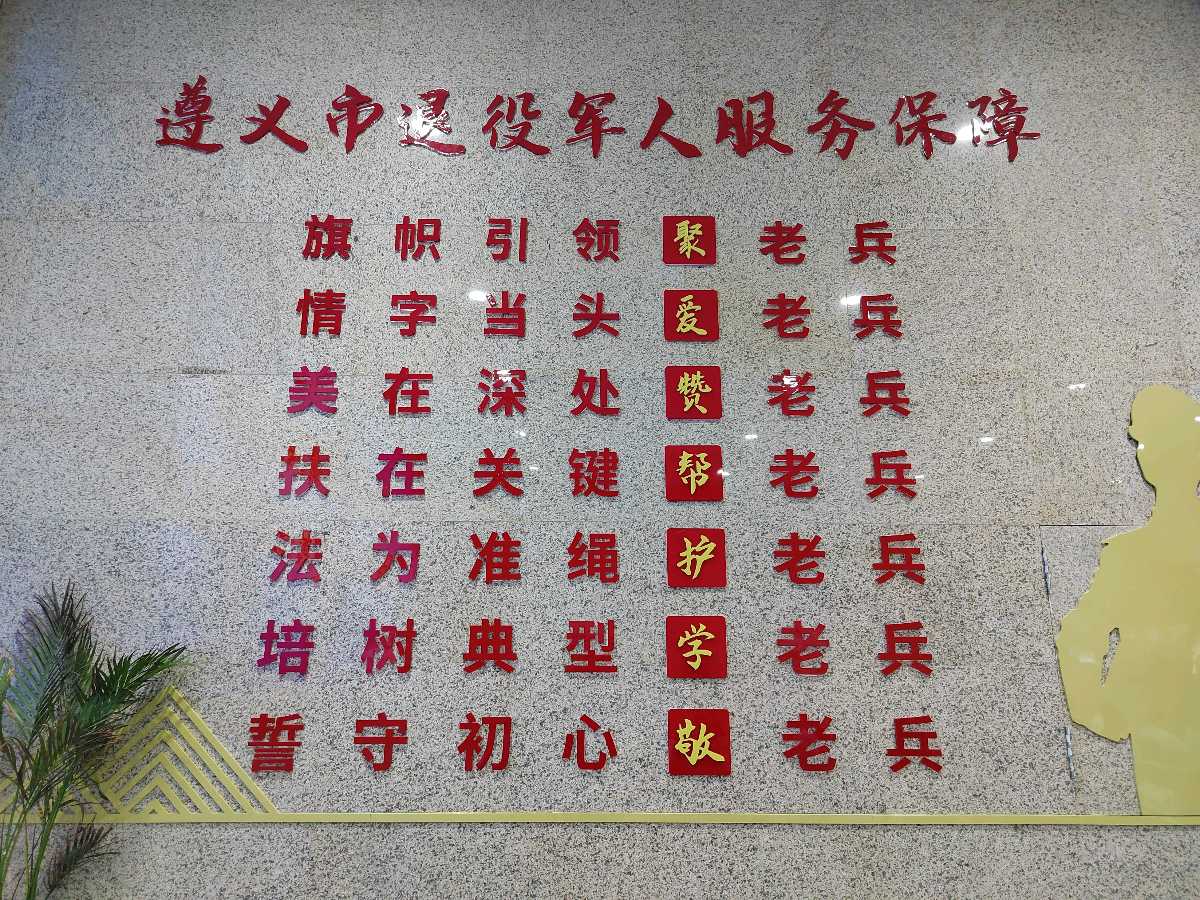 遵义市退役军人服务保障
旗帜引领聚老兵
情字当头爱老兵
美在深处赞老兵
扶在关键帮老兵
法为准绳护老兵
培树典型学老兵
誓守初心敬老兵